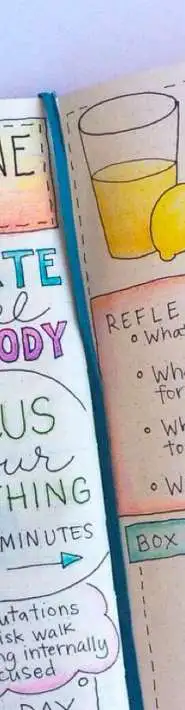 NE
ATE
el
ODY
US
ur
THING
MINUTES
utations
isk walk
ng internally
cused
DAY
REFLE
• Wha
• Wh
for
• Wh
to
• W
BOX